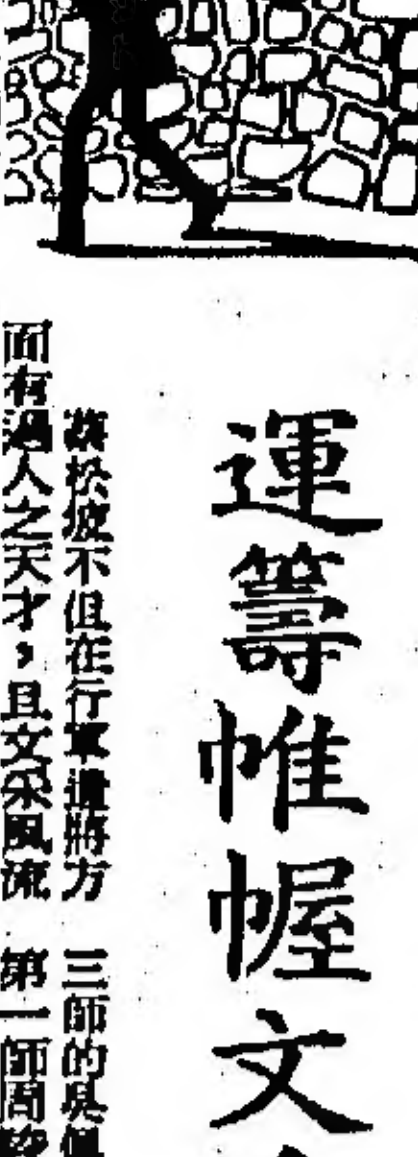 運籌帷幄文
蔡松坡不但在行軍遣將方
面有過人之天才，且文采風流
三師的吳佩
第一師周